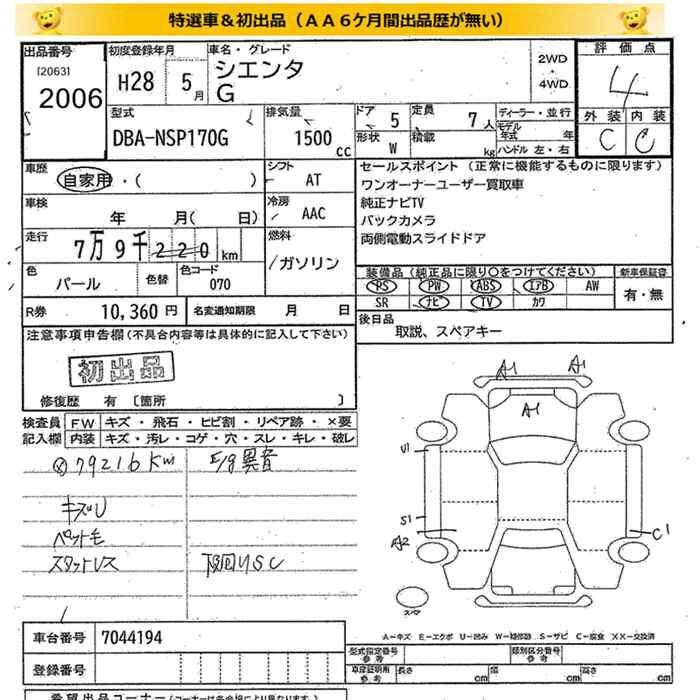 特選車＆初出品（ＡＡ６ケ月間出品歴が無い）
出品番号
[2063]
2006
初度登録年月
H28 5月
車名・グレード
シエンタ
G
2WD
・
4WD
評価点
4
外装 内装
C C
型式
DBA-NSP170G
排気量
1500 cc
ドア 5
定員 7人
形状 W
積載 kg
ディーラー・並行
モデル年式 年
ハンドル 左・右
車歴
自家用・( )
シフト
AT
車検
年 月( 日)
冷房
AAC
走行
7万9千220km
燃料
ガソリン
色
パール
色替
色コード
070
R券 10,360円
名変通知期限 月 日
セールスポイント（正常に機能するものに限ります）
ワンオーナーユーザー買取車
純正ナビTV
バックカメラ
両側電動スライドドア
装備品（純正品に限り○をつけてください）
PS PW ABS エアB AW
SR ナビ TV カワ
新車保証書
有・無
後日品
取説、スペアキー
注意事項申告欄(不具合内容等は具体的に記入して下さい)
初出品
修復歴 有 〔箇所 〕
検査員記入欄
FW キズ・飛石・ヒビ割・リペア跡・×要
内装 キズ・汚レ・コゲ・穴・スレ・キレ・破レ
79216km
E/g異音
キズU
ペット毛
スタットレス
下回りSC
A1 A1
A1
U1
S1
A2
C1
スペア
A－キズ E－エクボ U－凹み W－補修跡 S－サビ C－腐食 XX－交換済
車台番号 7044194
登録番号
型式指定番号
参考
類別区分番号
参考
車庫証明用
参考
長さ cm
幅 cm
高さ cm
希望出品コーナー